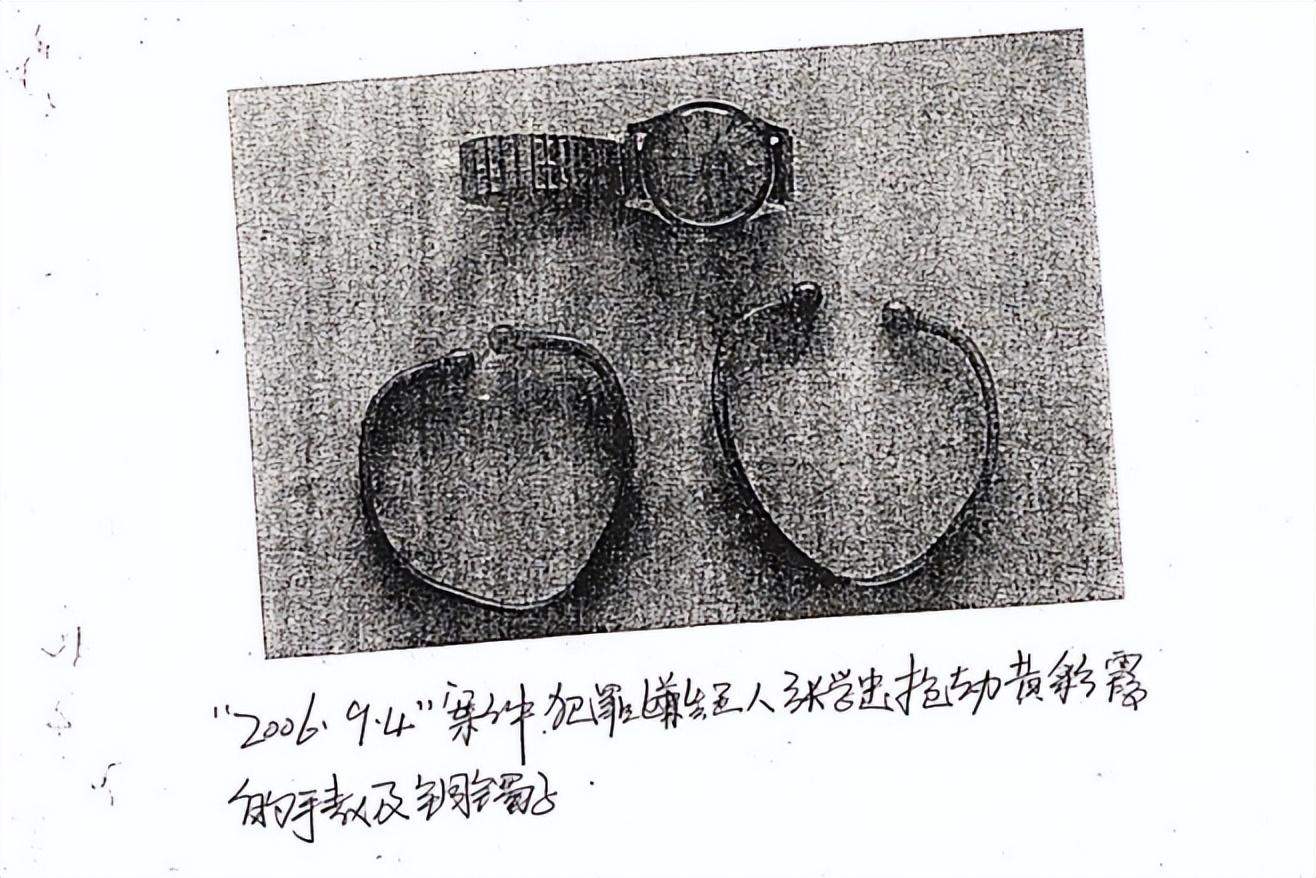 “2006.9.4”案件犯罪嫌疑人张学忠抢劫黄彩霞
的手表及铜镯子.